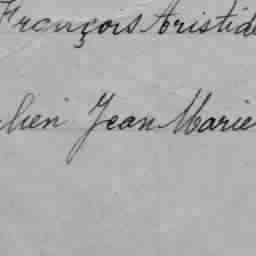 François Aristide
lien Jean Marie